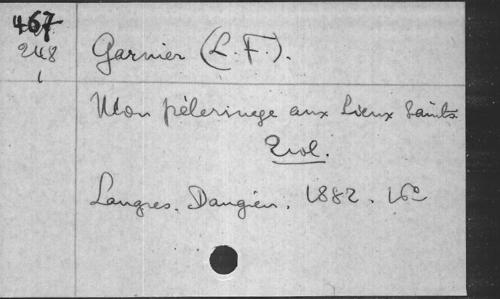 467
248
1
Garnier (L. F.).
Mon pèlerinage aux Lieux Saints
Langres. Dangien. 1882. 16º